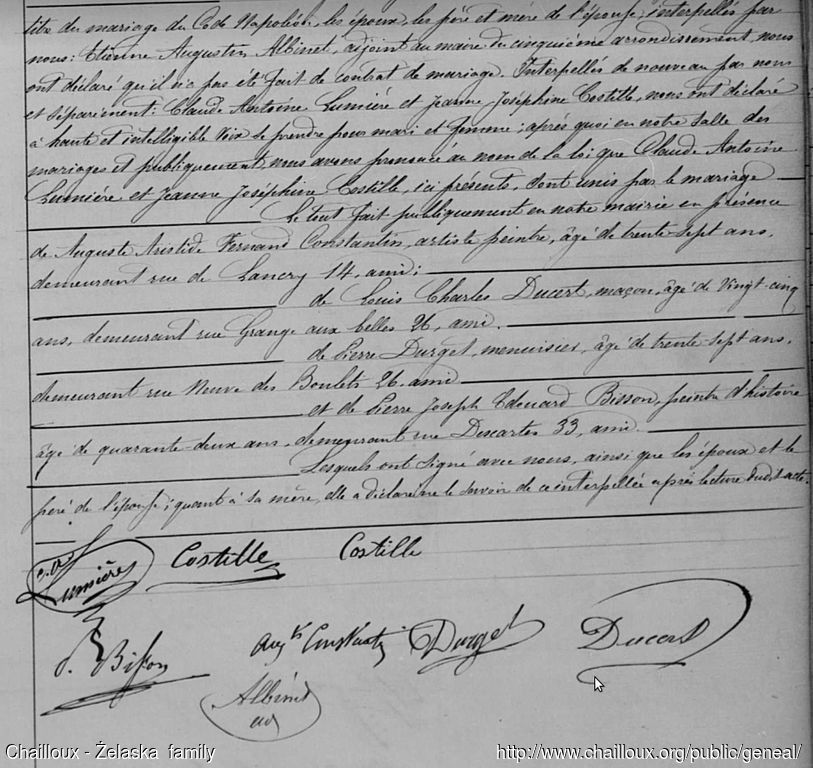 titre du mariage du Code Napoléon, les époux, les père et mère de l'épouse, interpellés par
nous: Etienne Augustin Albinet, adjoint au maire du cinquième arrondissement, nous
ont déclaré qu'il n'a pas été fait de contrat de mariage. Interpellés de nouveau par nous
et séparément: Claude Antoine Lumière et Jeanne Joséphine Costille, nous ont déclaré
à haute et intelligible voix se prendre pour mari et femme; après quoi en notre salle des
mariages et publiquement, nous avons prononcé au nom de la loi que Claude Antoine
Lumière et Jeanne Joséphine Costille, ici présents, sont unis par le mariage
Le tout fait publiquement en notre mairie en présence
de Auguste Aristide Fernand Constantin, artiste peintre, âgé de trente sept ans,
demeurant rue de Lancry 14, ami;
de Louis Charles Ducert, maçon, âgé de Vingt-cinq
ans, demeurant rue Grange aux belles 26, ami.
de Pierre Durget, menuisier, âgé de trente-sept ans,
demeurant rue Neuve des Boulets 26, ami
et de Pierre Joseph Edouard Bisson, peintre d'histoire
âgé de quarante-deux ans, demeurant rue Descartes 33, ami
Lesquels ont signé avec nous, ainsi que les époux et le
père de l'épouse; quant à sa mère, elle a déclaré ne le savoir de ce interpellée après lecture dudit acte.
Lumière Costille Costille
Bisson Augte Constantin Durget Ducert
Albinet
adj
Chailloux - Želaska family http://www.chailloux.org/public/geneal/